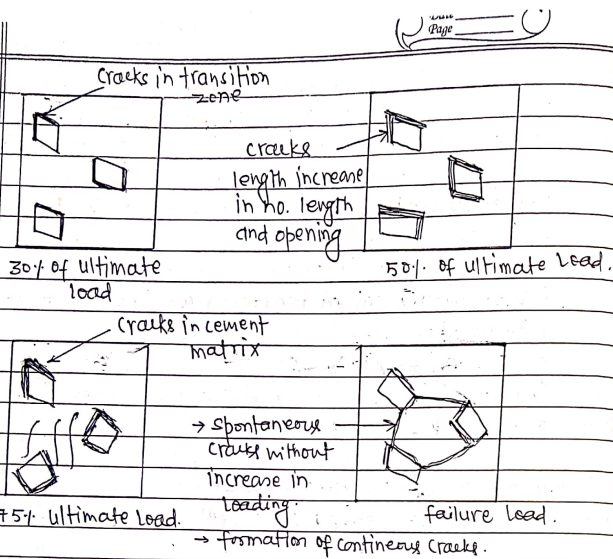 Page
Cracks in transition
zone
cracks
length increase
in no. length
and opening
30% of ultimate
load
50%. of ultimate Load.
Cracks in cement
matrix
→ spontaneous
cracks without
increase in
loading.
75% ultimate Load.
failure Load.
→ formation of contineous cracks.